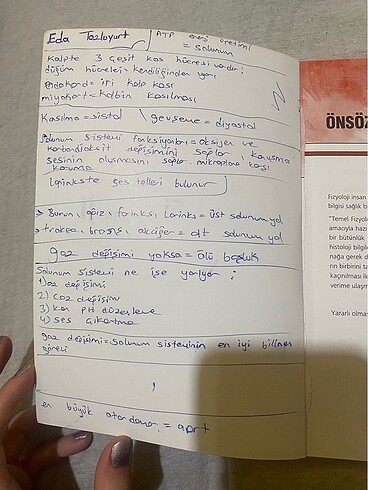 Eda Tozloyurt
ATP enerji üretimi
= solunum
Kalpte 3 çeşit kas hücresi vardır:
düğüm hücreleri = kendiliğinden
endokard = iri kalp kası
miyokart = kalbin kasılması
Kasılma = sistol / gevşeme = diyastol
Solunum sistemi fonksiyonları = oksijen ve
karbondioksit değişimini sağlar, konuşma
sesinin oluşmasını sağlar. mikroplara karşı
koruma
Larinkste ses telleri bulunur
→ Burun, ağız, farinks, Larinks = üst solunum yol
→ trakea, bronş, akciğer = alt solunum yol
gaz değişimi yoksa = ölü boşluk
Solunum sistemi ne işe yarıyor;
1) o2 değişimi
2) co2 değişim
3) kan PH düzenleme
4) ses çıkartma
gaz değişimi = solunum sisteminin en iyi bilinen
görevi
en büyük atardamar = aort
ÖNSÖZ
Fizyoloji insan
bilgisi sağlık b
"Temel Fizyolo
amacıyla hazı
bir bütünlük
histoloji bilgile
nağa gerek d
rın birbirini ta
kaçınılması ilk
verime ulaşm
Yararlı olmas